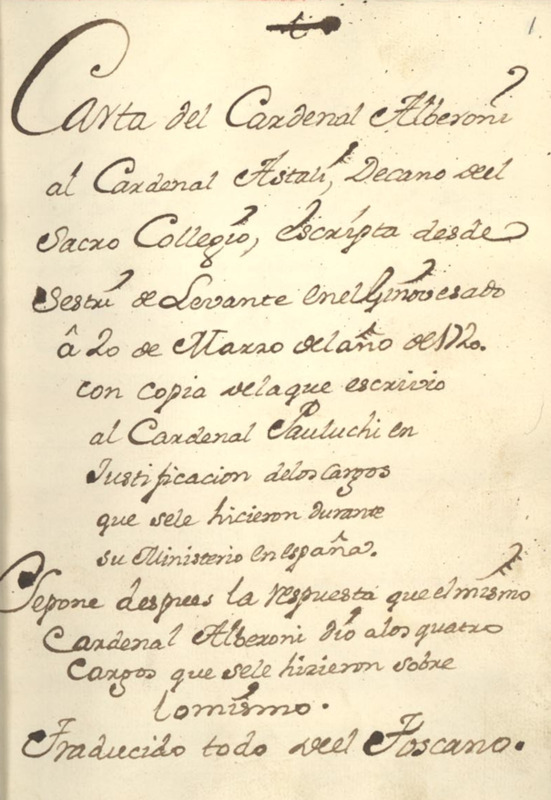 1
Carta del Cardenal Alberoni
al Cardenal Astali, Decano del
Sacro Collegio, escripta desde
Sestri de Levante en el Ginovesado
â 20 de Marzo del año de 1720.
con copia delaque escrivio
al Cardenal Pauluchi en
Justificacion delos cargos
que sele hicieron durante
su Ministerio en españa.
Sepone despues la respuesta que el mismo
Cardenal Alberoni dió alos quatro
Cargos que sele hizieron sobre
lo mismo.
Traducido todo del Toscano.